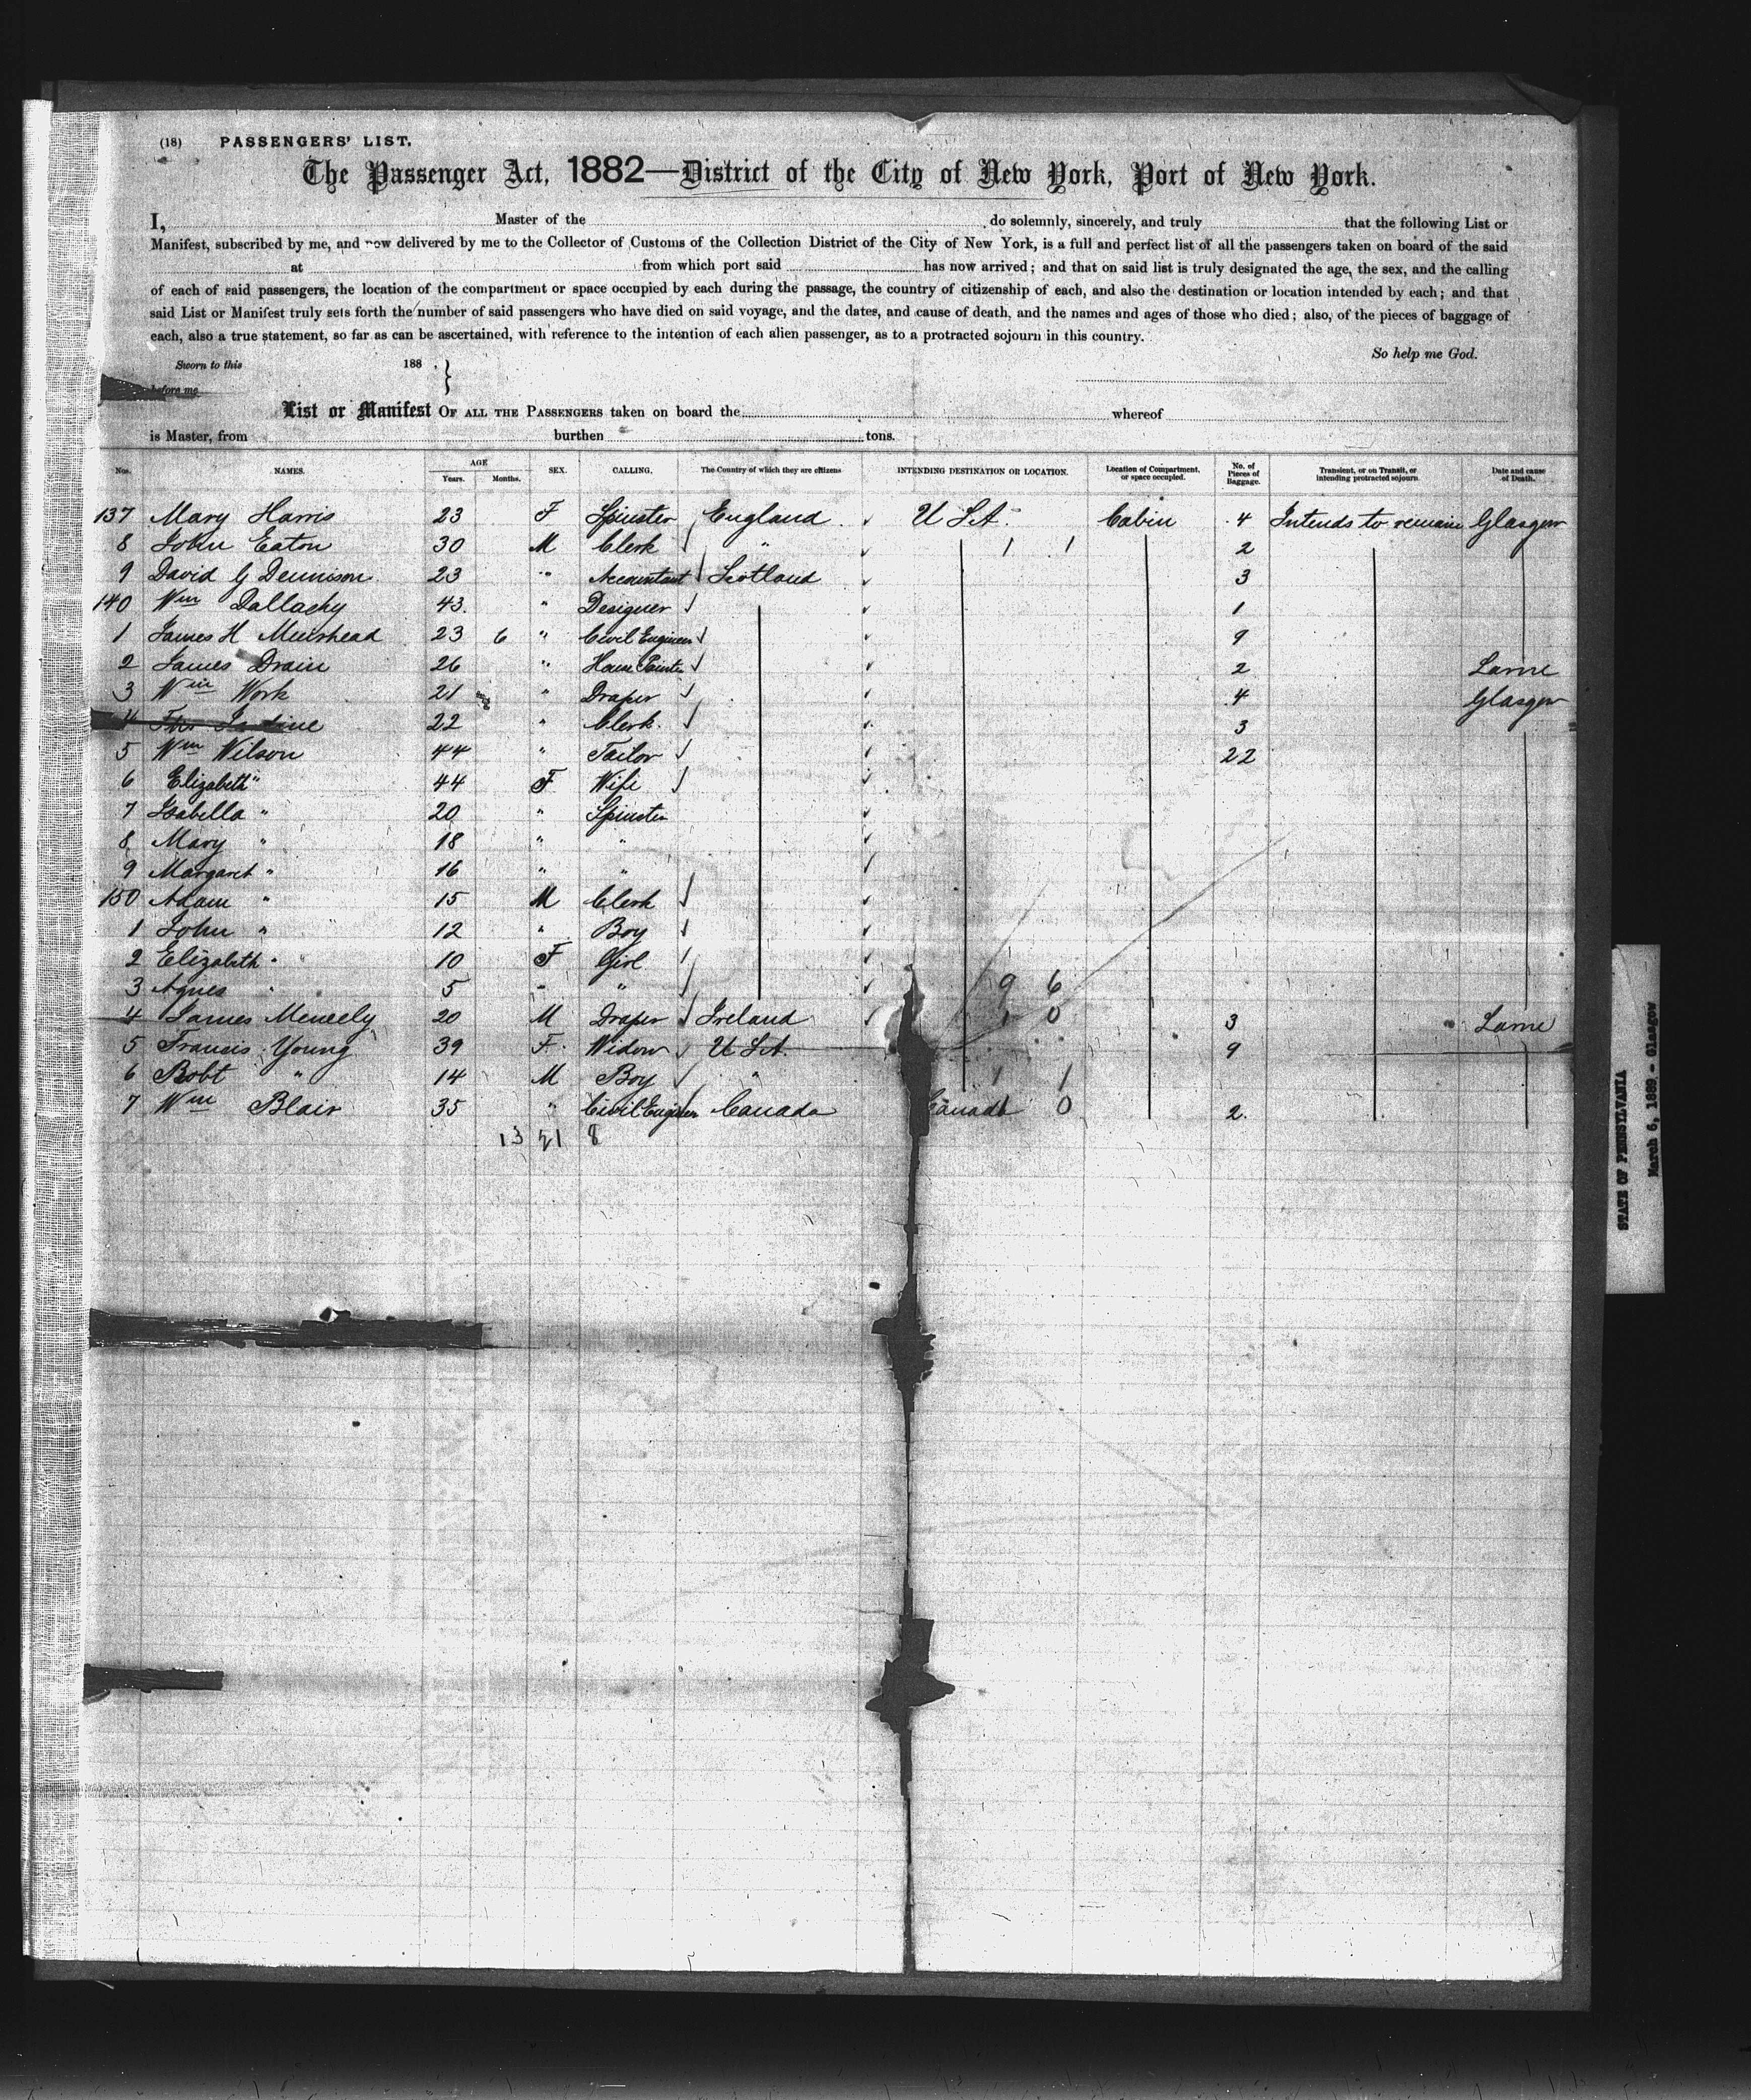 (18) PASSENGERS' LIST.
The Passenger Act, 1882—District of the City of New York, Port of New York.
I, Master of the do solemnly, sincerely, and truly that the following List or
Manifest, subscribed by me, and now delivered by me to the Collector of Customs of the Collection District of the City of New York, is a full and perfect list of all the passengers taken on board of the said
at from which port said has now arrived; and that on said list is truly designated the age, the sex, and the calling
of each of said passengers, the location of the compartment or space occupied by each during the passage, the country of citizenship of each, and also the destination or location intended by each; and that
said List or Manifest truly sets forth the number of said passengers who have died on said voyage, and the dates, and cause of death, and the names and ages of those who died; also, of the pieces of baggage of
each, also a true statement, so far as can be ascertained, with reference to the intention of each alien passenger, as to a protracted sojourn in this country.
So help me God.
Sworn to this 188 }
before me
List or Manifest OF ALL THE PASSENGERS taken on board the whereof
is Master, from burthen tons.
Nos. NAMES. AGE Years. Months. SEX. CALLING. The Country of which they are citizens INTENDING DESTINATION OR LOCATION. Location of Compartment, or space occupied. No. of Pieces of Baggage. Transient, or on Transit, or intending protracted sojourn Date and cause of Death.
137 Mary Harris 23 F Spinster England U S A. Cabin 4 Intends to remain Glasgow
8 John Eaton 30 M Clerk " 1 1 2
9 David G Dennison 23 " Accountant Scotland 3
140 Wm Dallachy 43. " Designer 1
1 James H Muirhead 23 6 " Civil Engineer 9
2 James Drain 26 " House Painter 2 Larne
3 Wm Work 21 " Draper 4 Glasgow
4 22 " Clerk. 3
5 Wm Wilson 44 " Tailor 22
6 Elizabeth " 44 F Wife
7 Isabella " 20 " Spinster
8 Mary " 18 " "
9 Margaret " 16 " "
150 Adam " 15 M Clerk
1 John " 12 " Boy
2 Elizabeth " 10 F Girl
3 Agnes " 5 " " 9 6
4 James Meneely 20 M Draper Ireland 1 0 3 Larne
5 Francis Young 39 F. Widow U S A. 9
6 Robt " 14 M Boy " 1 1
7 Wm Blair 35 " Civil Engineer Canada Canada 1 0 2.
13 21 8
STATE OF PENNSYLVANIA
March 6, 1889 - Glasgow